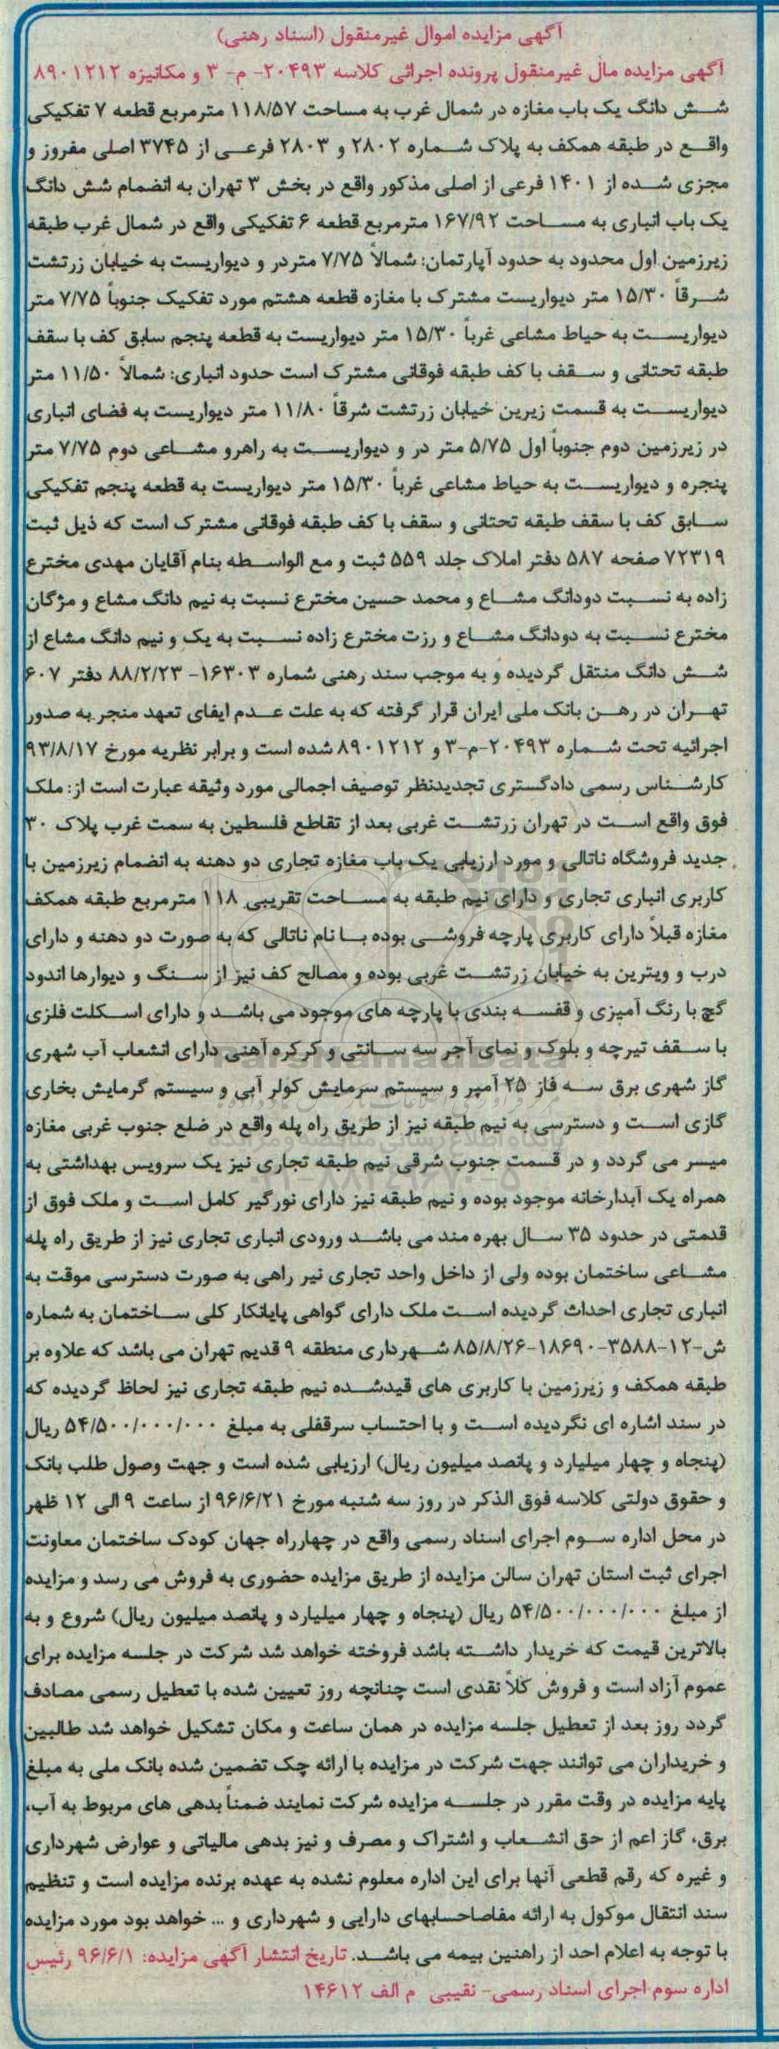 آگهی مزایده اموال غیرمنقول (اسناد رهنی)
آگهی مزایده مال غیرمنقول پرونده اجرائی کلاسه ۲۰۴۹۳- م- ۳ و مکانیزه ۸۹۰۱۲۱۲
شش دانگ یک باب مغازه در شمال غرب به مساحت ۱۱۸/۵۷ مترمربع قطعه ۷ تفکیکی
واقع در طبقه همکف به پلاک شماره ۲۸۰۲ و ۲۸۰۳ فرعی از ۳۷۴۵ اصلی مفروز و
مجزی شده از ۱۴۰۱ فرعی از اصلی مذکور واقع در بخش ۳ تهران به انضمام شش دانگ
یک باب انباری به مساحت ۱۶۷/۹۲ مترمربع قطعه ۶ تفکیکی واقع در شمال غرب طبقه
زیرزمین اول محدود به حدود آپارتمان: شمالاً ۷/۷۵ متردر و دیواریست به خیابان زرتشت
شرقاً ۱۵/۳۰ متر دیواریست مشترک با مغازه قطعه هشتم مورد تفکیک جنوباً ۷/۷۵ متر
دیواریست به حیاط مشاعی غرباً ۱۵/۳۰ متر دیواریست به قطعه پنجم سابق کف با سقف
طبقه تحتانی و سقف با کف طبقه فوقانی مشترک است حدود انباری: شمالاً ۱۱/۵۰ متر
دیواریست به قسمت زیرین خیابان زرتشت شرقاً ۱۱/۸۰ متر دیواریست به فضای انباری
در زیرزمین دوم جنوباً اول ۵/۷۵ متر در و دیواریست به راهرو مشاعی دوم ۷/۷۵ متر
پنجره و دیواریست به حیاط مشاعی غرباً ۱۵/۳۰ متر دیواریست به قطعه پنجم تفکیکی
سابق کف با سقف طبقه تحتانی و سقف با کف طبقه فوقانی مشترک است که ذیل ثبت
۷۲۳۱۹ صفحه ۵۸۷ دفتر املاک جلد ۵۵۹ ثبت و مع الواسطه بنام آقایان مهدی مخترع
زاده به نسبت دودانگ مشاع و محمد حسین مخترع نسبت به نیم دانگ مشاع و مژگان
مخترع نسبت به دودانگ مشاع و رزت مخترع زاده نسبت به یک و نیم دانگ مشاع از
شش دانگ منتقل گردیده و به موجب سند رهنی شماره ۱۶۳۰۳- ۸۸/۲/۲۳ دفتر ۶۰۷
تهران در رهن بانک ملی ایران قرار گرفته که به علت عدم ایفای تعهد منجر به صدور
اجرائیه تحت شماره ۲۰۴۹۳-م-۳ و ۸۹۰۱۲۱۲ شده است و برابر نظریه مورخ ۹۳/۸/۱۷
کارشناس رسمی دادگستری تجدیدنظر توصیف اجمالی مورد وثیقه عبارت است از: ملک
فوق واقع است در تهران زرتشت غربی بعد از تقاطع فلسطین به سمت غرب پلاک ۳۰
جدید فروشگاه ناتالی و مورد ارزیابی یک باب مغازه تجاری دو دهنه به انضمام زیرزمین با
کاربری انباری تجاری و دارای نیم طبقه به مساحت تقریبی ۱۱۸ مترمربع طبقه همکف
مغازه قبلاً دارای کاربری پارچه فروشی بوده با نام ناتالی که به صورت دو دهنه و دارای
درب و ویترین به خیابان زرتشت غربی بوده و مصالح کف نیز از سنگ و دیوارها اندود
گچ با رنگ آمیزی و قفسه بندی با پارچه های موجود می باشد و دارای اسکلت فلزی
با سقف تیرچه و بلوک و نمای آجر سه سانتی و کرکره آهنی دارای انشعاب آب شهری
گاز شهری برق سه فاز ۲۵ آمپر و سیستم سرمایش کولر آبی و سیستم گرمایش بخاری
گازی است و دسترسی به نیم طبقه نیز از طریق راه پله واقع در ضلع جنوب غربی مغازه
میسر می گردد و در قسمت جنوب شرقی نیم طبقه تجاری نیز یک سرویس بهداشتی به
همراه یک آبدارخانه موجود بوده و نیم طبقه نیز دارای نورگیر کامل است و ملک فوق از
قدمتی در حدود ۳۵ سال بهره مند می باشد ورودی انباری تجاری نیز از طریق راه پله
مشاعی ساختمان بوده ولی از داخل واحد تجاری نیر راهی به صورت دسترسی موقت به
انباری تجاری احداث گردیده است ملک دارای گواهی پایانکار کلی ساختمان به شماره
ش-۱۲-۳۵۸۸-۱۸۶۹۰-۸۵/۸/۲۶ شهرداری منطقه ۹ قدیم تهران می باشد که علاوه بر
طبقه همکف و زیرزمین با کاربری های قیدشده نیم طبقه تجاری نیز لحاظ گردیده که
در سند اشاره ای نگردیده است و با احتساب سرقفلی به مبلغ ۵۴/۵۰۰/۰۰۰/۰۰۰ ریال
(پنجاه و چهار میلیارد و پانصد میلیون ریال) ارزیابی شده است و جهت وصول طلب بانک
و حقوق دولتی کلاسه فوق الذکر در روز سه شنبه مورخ ۹۶/۶/۲۱ از ساعت ۹ الی ۱۲ ظهر
در محل اداره سوم اجرای اسناد رسمی واقع در چهارراه جهان کودک ساختمان معاونت
اجرای ثبت استان تهران سالن مزایده از طریق مزایده حضوری به فروش می رسد و مزایده
از مبلغ ۵۴/۵۰۰/۰۰۰/۰۰۰ ریال (پنجاه و چهار میلیارد و پانصد میلیون ریال) شروع و به
بالاترین قیمت که خریدار داشته باشد فروخته خواهد شد شرکت در جلسه مزایده برای
عموم آزاد است و فروش کلاً نقدی است چنانچه روز تعیین شده با تعطیل رسمی مصادف
گردد روز بعد از تعطیل جلسه مزایده در همان ساعت و مکان تشکیل خواهد شد طالبین
و خریداران می توانند جهت شرکت در مزایده با ارائه چک تضمین شده بانک ملی به مبلغ
پایه مزایده در وقت مقرر در جلسه مزایده شرکت نمایند ضمناً بدهی های مربوط به آب،
برق، گاز اعم از حق انشعاب و اشتراک و مصرف و نیز بدهی مالیاتی و عوارض شهرداری
و غیره که رقم قطعی آنها برای این اداره معلوم نشده به عهده برنده مزایده است و تنظیم
سند انتقال موکول به ارائه مفاصاحسابهای دارایی و شهرداری و ... خواهد بود مورد مزایده
با توجه به اعلام احد از راهنین بیمه می باشد. تاریخ انتشار آگهی مزایده: ۹۶/۶/۱ رئیس
اداره سوم اجرای اسناد رسمی- نقیبی م الف ۱۴۶۱۲